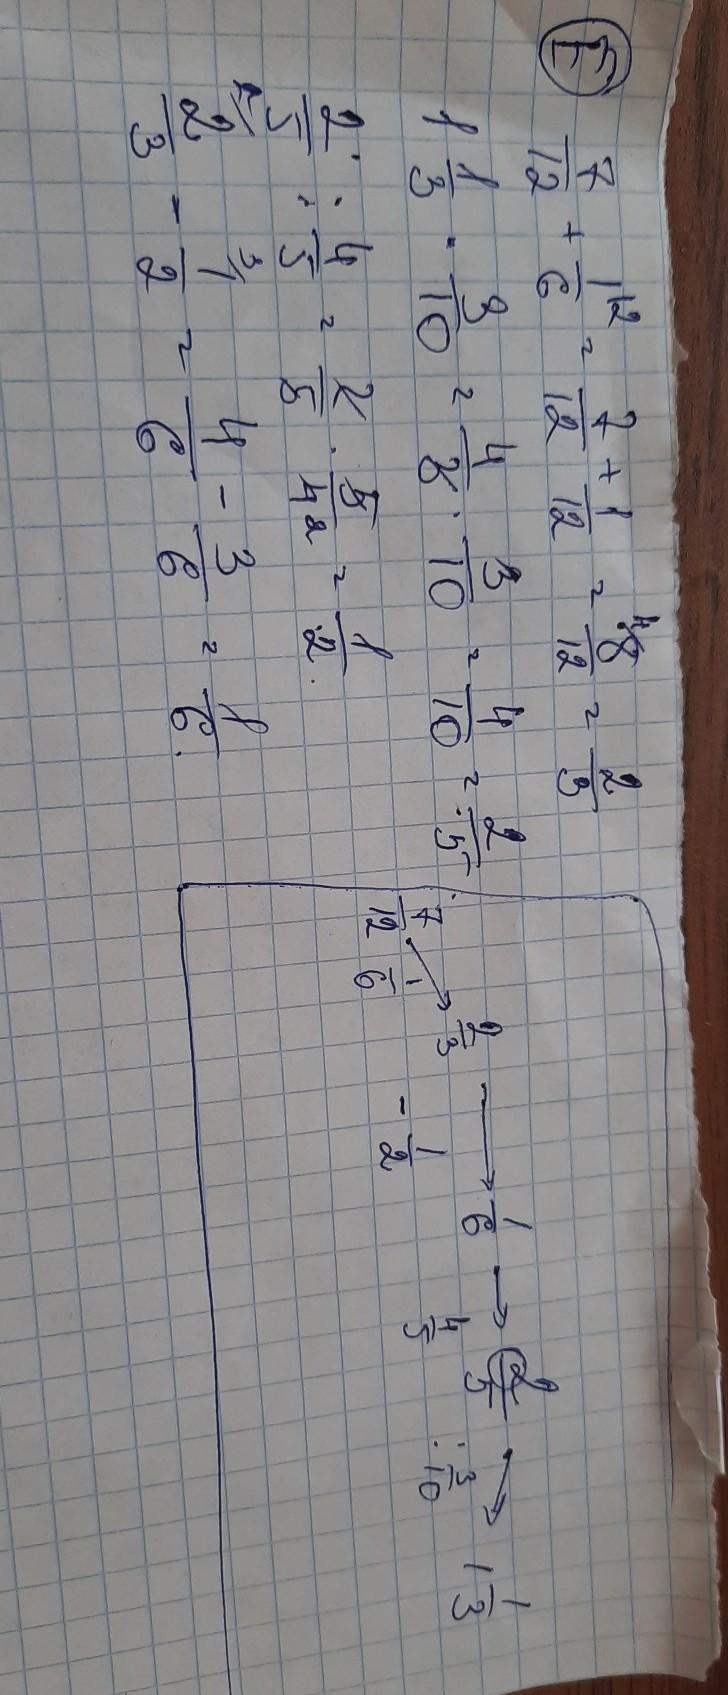 E
7/12 + 1\2/6 = 7/12 + 1/12 = 4\8/12 = 2/3
1 1/3 · 3/10 = 4/3 · 3/10 = 4/10 = 2/5
2/5 : 4/5 = 2/5 · 5/4 2 = 1/2.
2\2/3 - 3\1/2 = 4/6 - 3/6 = 1/6.
7/12 → 2/3 → 1/6 → 2/5 → 1 1/3
1/6 - 1/2 4/5 : 3/10